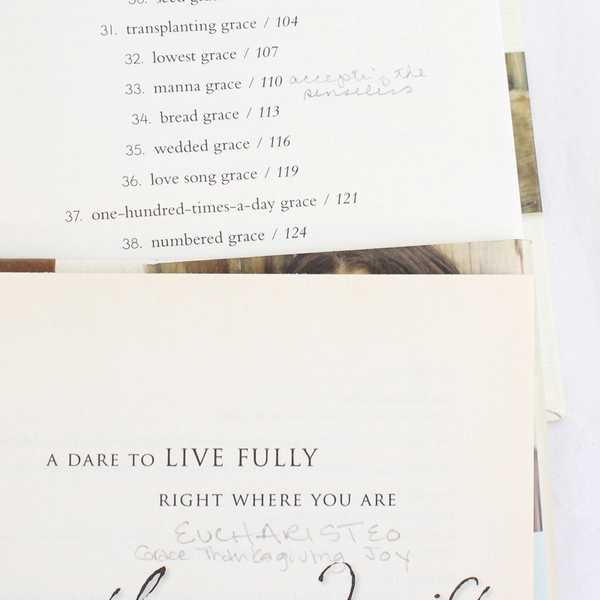 31. transplanting grace / 104
32. lowest grace / 107
33. manna grace / 110 accepting the
senseless
34. bread grace / 113
35. wedded grace / 116
36. love song grace / 119
37. one-hundred-times-a-day grace / 121
38. numbered grace / 124
A DARE TO LIVE FULLY
RIGHT WHERE YOU ARE
EUCHARISTEO
Grace Thanksgiving Joy